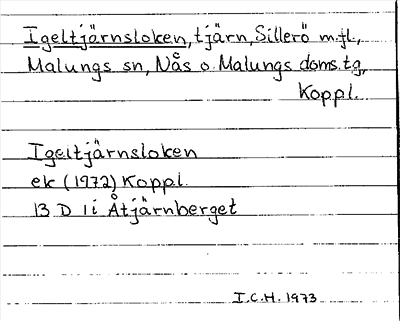 Igeltjärnsloken, tjärn, Sillerö m.fl.,
Malungs sn, Nås o. Malungs doms.tg,
Koppl.
Igeltjärnsloken
ek (1972) Koppl.
13 D 1 i Åtjärnberget
I.C.H. 1973